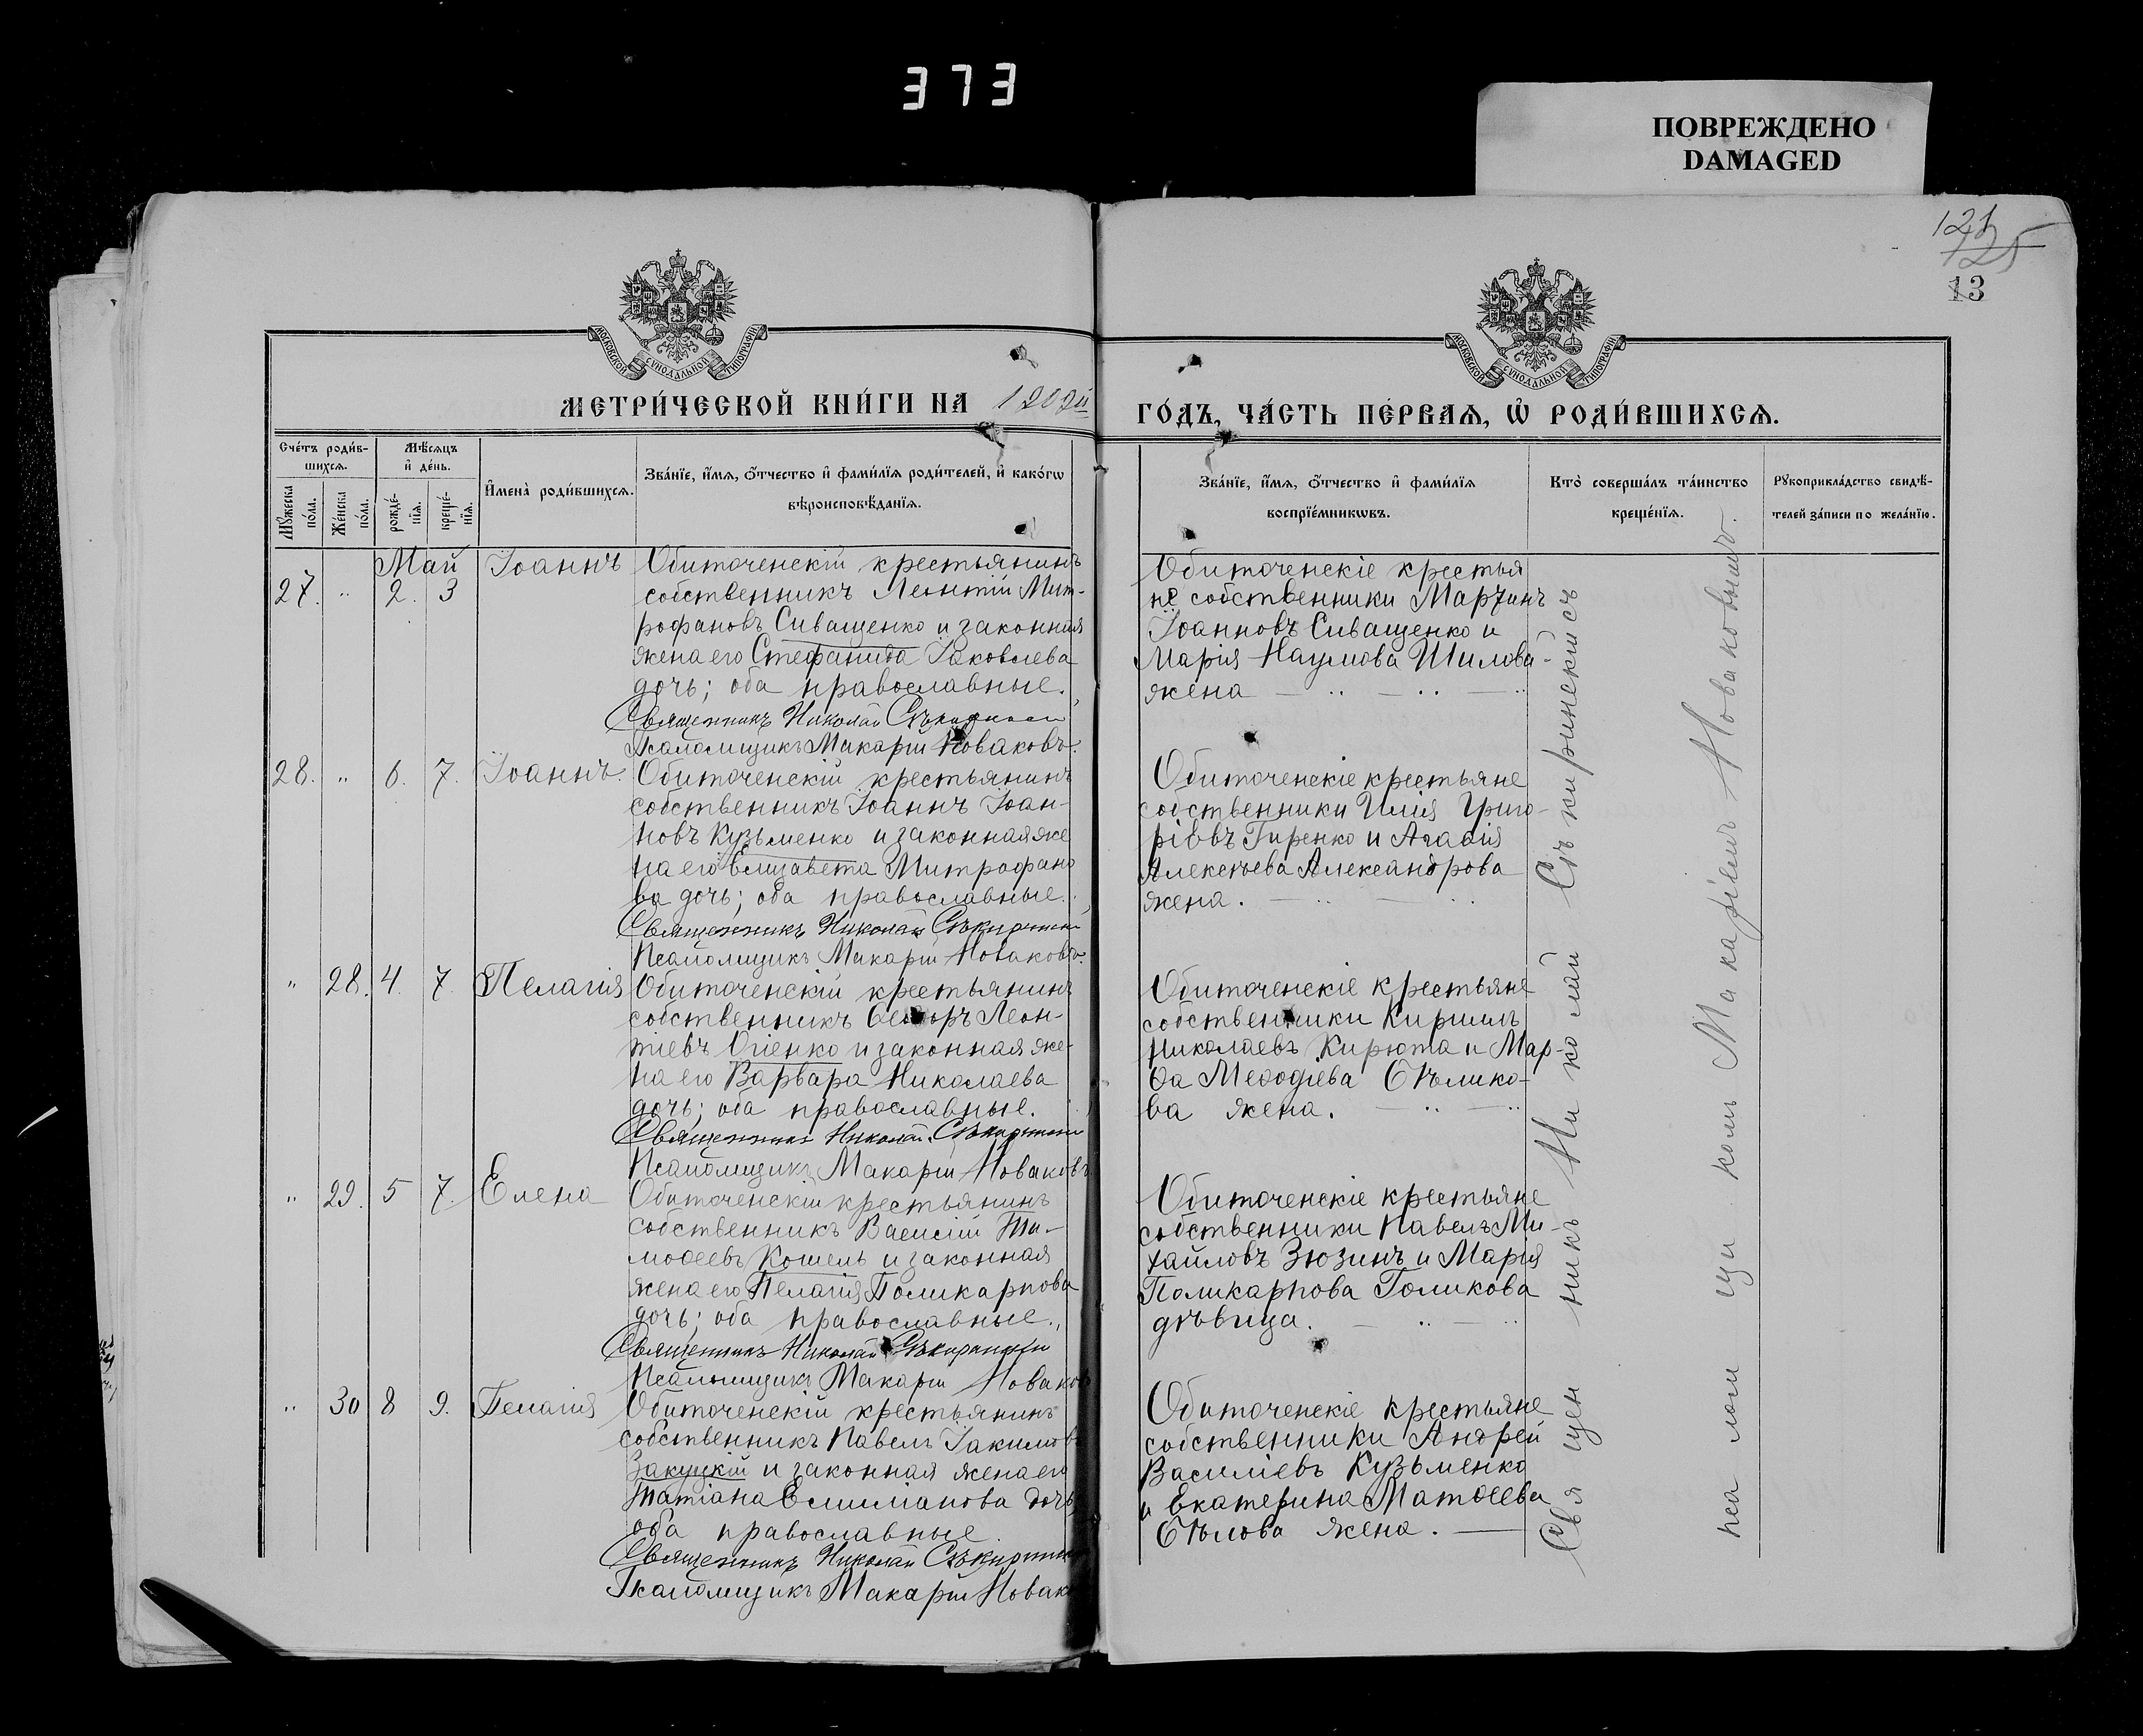 373
ПОВРЕЖДЕНО
DAMAGED
121
125
13
МОСКОВСКОЙ СѴНОДАЛЬНОЙ ТИПОГРАФІИ
МОСКОВСКОЙ СѴНОДАЛЬНОЙ ТИПОГРАФІИ
МЕТРИ́ЧЕСКОЙ КНИ́ГИ НА
ГО́ДЪ, ЧА́СТЬ ПЕ́РВАѦ, Ѡ҆ РОДИ́ВШИХСѦ.
Сче́тъ роди́в-
шихсѧ.
Мѣ́сѧцъ
и҆ де́нь.
Мꙋ́жеска
по́ла.
Же́нска
по́ла.
рожде́-
нїѧ.
креще́-
нїѧ.
И҆мена̀ роди́вшихсѧ.
Зва́нїе, и҆́мѧ, ѻ҆́тчество и҆ фами́лїѧ роди́телей, и҆ како́гѡ
вѣроисповѣ́данїѧ.
Зва́нїе, и҆́мѧ, ѻ҆́тчество и҆ фами́лїѧ
воспрїе́мникѡвъ.
Кто̀ соверша́лъ та́инство
креще́нїѧ.
Рꙋкоприкла́дство свидѣ́-
телей за́писи по жела́нїю.
Май
27. " 2. 3
Іоаннъ
Обиточенскій крестьянинъ
собственникъ Леонтій Мит-
рофановъ Сиващенко и законная
жена его Стефанида Іаковлева
дочь; оба православные.
Священникъ Николай Сѣкиринскій
Псаломщикъ Макарій Новаковъ.
Обиточенскіе крестья
не собственники Мартинъ
Іоанновъ Сиващенко и
Марія Наумова Шилова-
жена
28. " 6. 7.
Іоаннъ.
Обиточенскій крестьянинъ
собственникъ Іоаннъ Іоан-
новъ Кузьменко и законная же
на его Елизавета Митрофано
ва дочь; оба православные.
Священникъ Николай Сѣкиринскій
Псаломщикъ Макарій Новаковъ.
Обиточенскіе крестьяне
собственники Илія Григо-
ріевъ Гиренко и Агаѳія
Алексѣева Александрова
жена.
" 28. 4. 7.
Пелагія
Обиточенскій крестьянинъ
собственникъ Ѳеодоръ Леон-
тіевъ Огіенко и законная же-
на его Варвара Николаева
дочь; оба православные.
Священникъ Николай Сѣкиринскій
Псаломщикъ Макарій Новаковъ
Обиточенскіе крестьяне
собственники Кириллъ
Николаевъ Кирюта и Мар-
ѳа Меѳодіева Бѣлико-
ва жена.
" 29. 5 7.
Елена
Обиточенскій крестьянинъ
собственникъ Василій Ти-
моѳеевъ Кошель и законная
жена его Пелагія Поликарпова
дочь; оба православные.
Священникъ Николай Сѣкиринскій
Псаломщикъ Макарій Новаков
Обиточенскіе крестьяне
собственники Павелъ Ми-
хайловъ Зюзинъ и Марія
Поликарпова Голикова
дѣвица.
" 30 8 9.
Пелагія
Обиточенскій крестьянинъ
собственникъ Павелъ Іакимов
Закуцкій и законная жена его
Татіана Емиліанова дочь
оба православные.
Священникъ Николай Сѣкиринскій
Псаломщикъ Макарій Новак
Обиточенскіе крестьяне
собственники Андрей
Василіевъ Кузьменко
и Екатерина Матѳеева
Бѣлова жена.
Священникъ Николай Сѣкиринскій съ
псаломщикомъ Макаріемъ Новаковымъ.